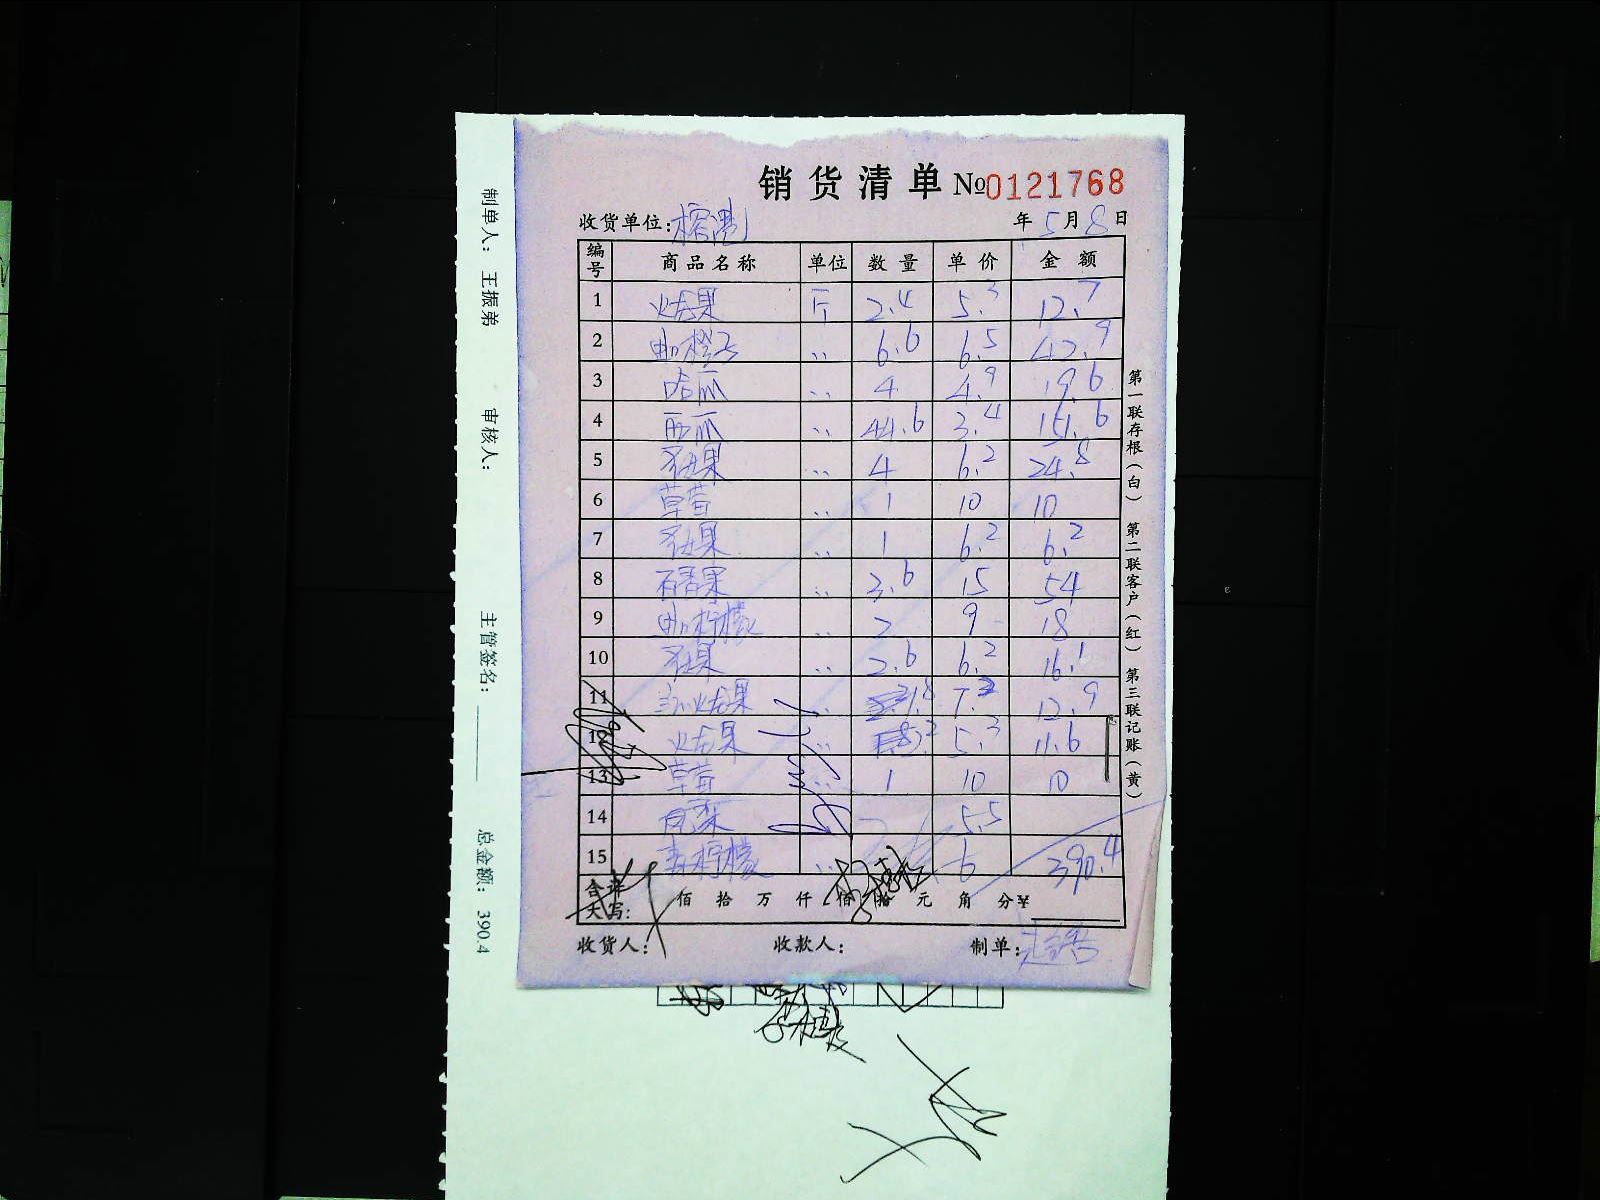 销货清单 №0121768
收货单位: 年 5 月 8 日
编号 商品名称 单位 数量 单价 金额
1 火龙果 斤 2.4 5.3 12.7
2 橙子 〃 6.6 6.5 42.9
3 哈瓜 〃 4 4.9 19.6
4 西瓜 〃 44.6 3.4 151.6
5 果 〃 4 6.2 24.8
6 草莓 〃 1 10 10
7 果 〃 1 6.2 6.2
8 百香果 〃 3.6 15 54
9 柠檬 〃 2 9 18
10 果 〃 2.6 6.2 16.1
11 火龙果 〃 1.8 7.2 12.9
12 火龙果 〃 2.2 5.3 11.6
13 草莓 〃 1 10 10
14 凤梨 5.5
15 柠檬 〃 6 390.4
合计大写: 佰 拾 万 仟 佰 拾 元 角 分 ¥
收货人: 收款人: 制单:
第一联存根(白) 第二联客户(红) 第三联记账(黄)
制单人: 王振弟 审核人: 主管签名: 总金额: 390.4